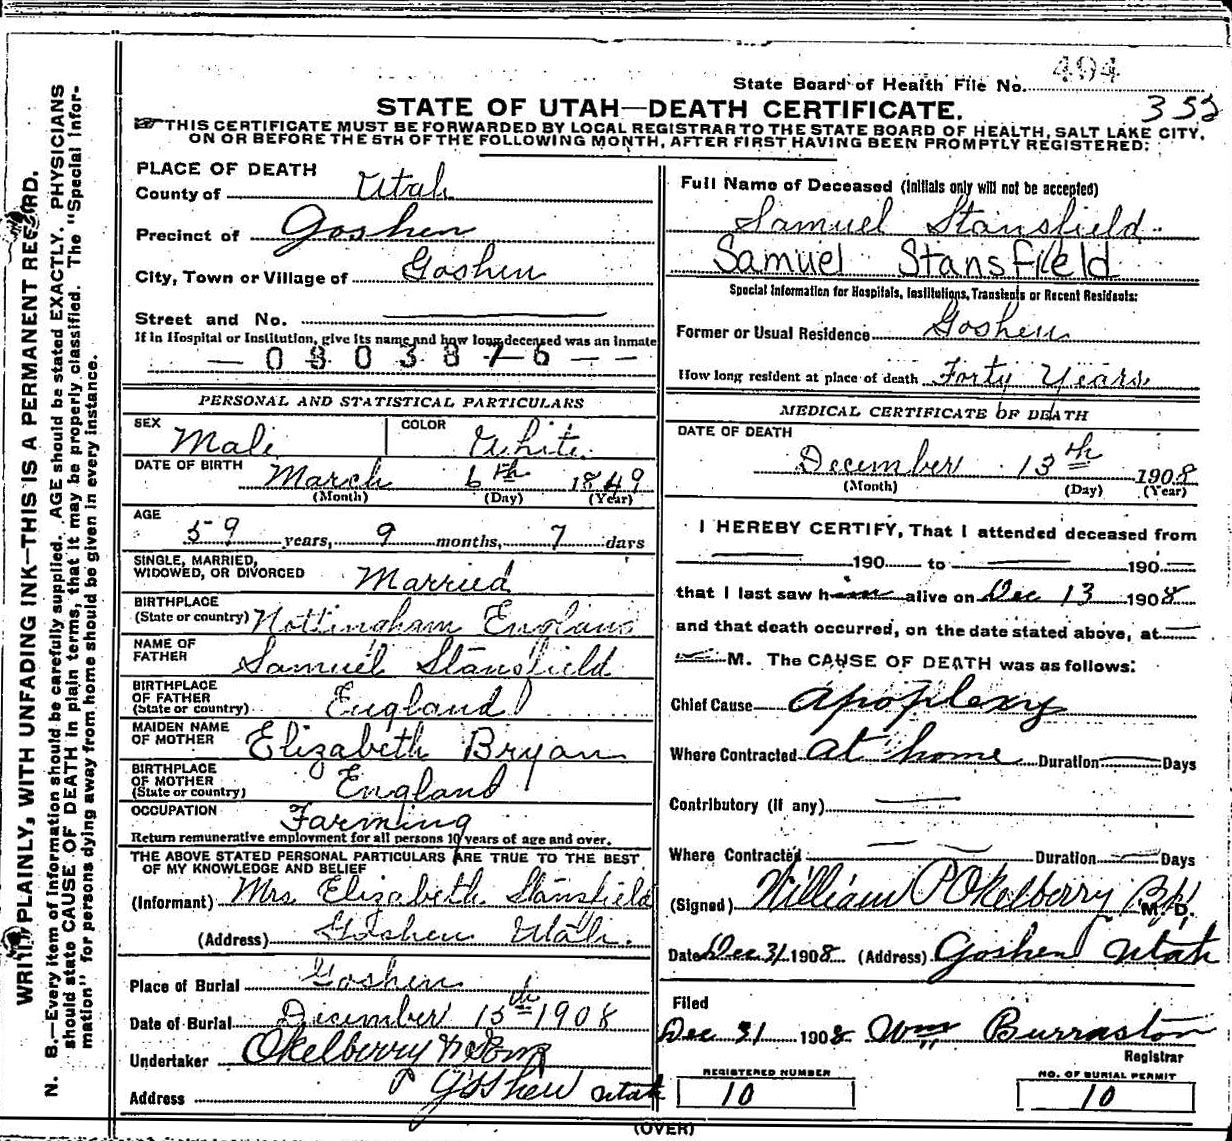 State Board of Health File No. 494
352
STATE OF UTAH—DEATH CERTIFICATE.
THIS CERTIFICATE MUST BE FORWARDED BY LOCAL REGISTRAR TO THE STATE BOARD OF HEALTH, SALT LAKE CITY,
ON OR BEFORE THE 5TH OF THE FOLLOWING MONTH, AFTER FIRST HAVING BEEN PROMPTLY REGISTERED:
WRITE PLAINLY, WITH UNFADING INK—THIS IS A PERMANENT RECORD.
N. B.—Every item of information should be carefully supplied. AGE should be stated EXACTLY. PHYSICIANS
should state CAUSE OF DEATH in plain terms, that it may be properly classified. The "Special Infor-
mation" for persons dying away from home should be given in every instance.
PLACE OF DEATH
County of Utah
Precinct of Goshen
City, Town or Village of Goshen
Street and No.
If in Hospital or Institution, give its name and how long deceased was an inmate
— 0803876 — —
PERSONAL AND STATISTICAL PARTICULARS
SEX Male COLOR White
DATE OF BIRTH March 6th 1849
(Month) (Day) (Year)
AGE
59 years, 9 months, 7 days
SINGLE, MARRIED,
WIDOWED, OR DIVORCED Married
BIRTHPLACE
(State or country) Nottingham England
NAME OF
FATHER Samuel Stansfield
BIRTHPLACE
OF FATHER
(State or country) England
MAIDEN NAME
OF MOTHER Elizabeth Bryan
BIRTHPLACE
OF MOTHER
(State or country) England
OCCUPATION Farming
Return remunerative employment for all persons 10 years of age and over.
THE ABOVE STATED PERSONAL PARTICULARS ARE TRUE TO THE BEST
OF MY KNOWLEDGE AND BELIEF
(Informant) Mrs. Elizabeth Stansfield
(Address) Goshen Utah.
Place of Burial Goshen
Date of Burial December 15th 1908
Undertaker Okelberry & Sons
Address Goshen Utah
Full Name of Deceased (Initials only will not be accepted)
Samuel Stansfield
Samuel Stansfield
Special Information for Hospitals, Institutions, Transients or Recent Residents:
Former or Usual Residence Goshen
How long resident at place of death Forty Years
MEDICAL CERTIFICATE OF DEATH
DATE OF DEATH
December 13th 1908
(Month) (Day) (Year)
I HEREBY CERTIFY, That I attended deceased from
190 to 190
that I last saw him alive on Dec 13 1908
and that death occurred, on the date stated above, at
M. The CAUSE OF DEATH was as follows:
Chief Cause apoplexy
Where Contracted at home Duration Days
Contributory (if any)
Where Contracted Duration Days
(Signed) William P Okelberry M. D.
Date Dec 31 1908 (Address) Goshen Utah
Filed
Dec 31 1908 Wm Burraston
Registrar
REGISTERED NUMBER
10
NO. OF BURIAL PERMIT
10
(OVER)